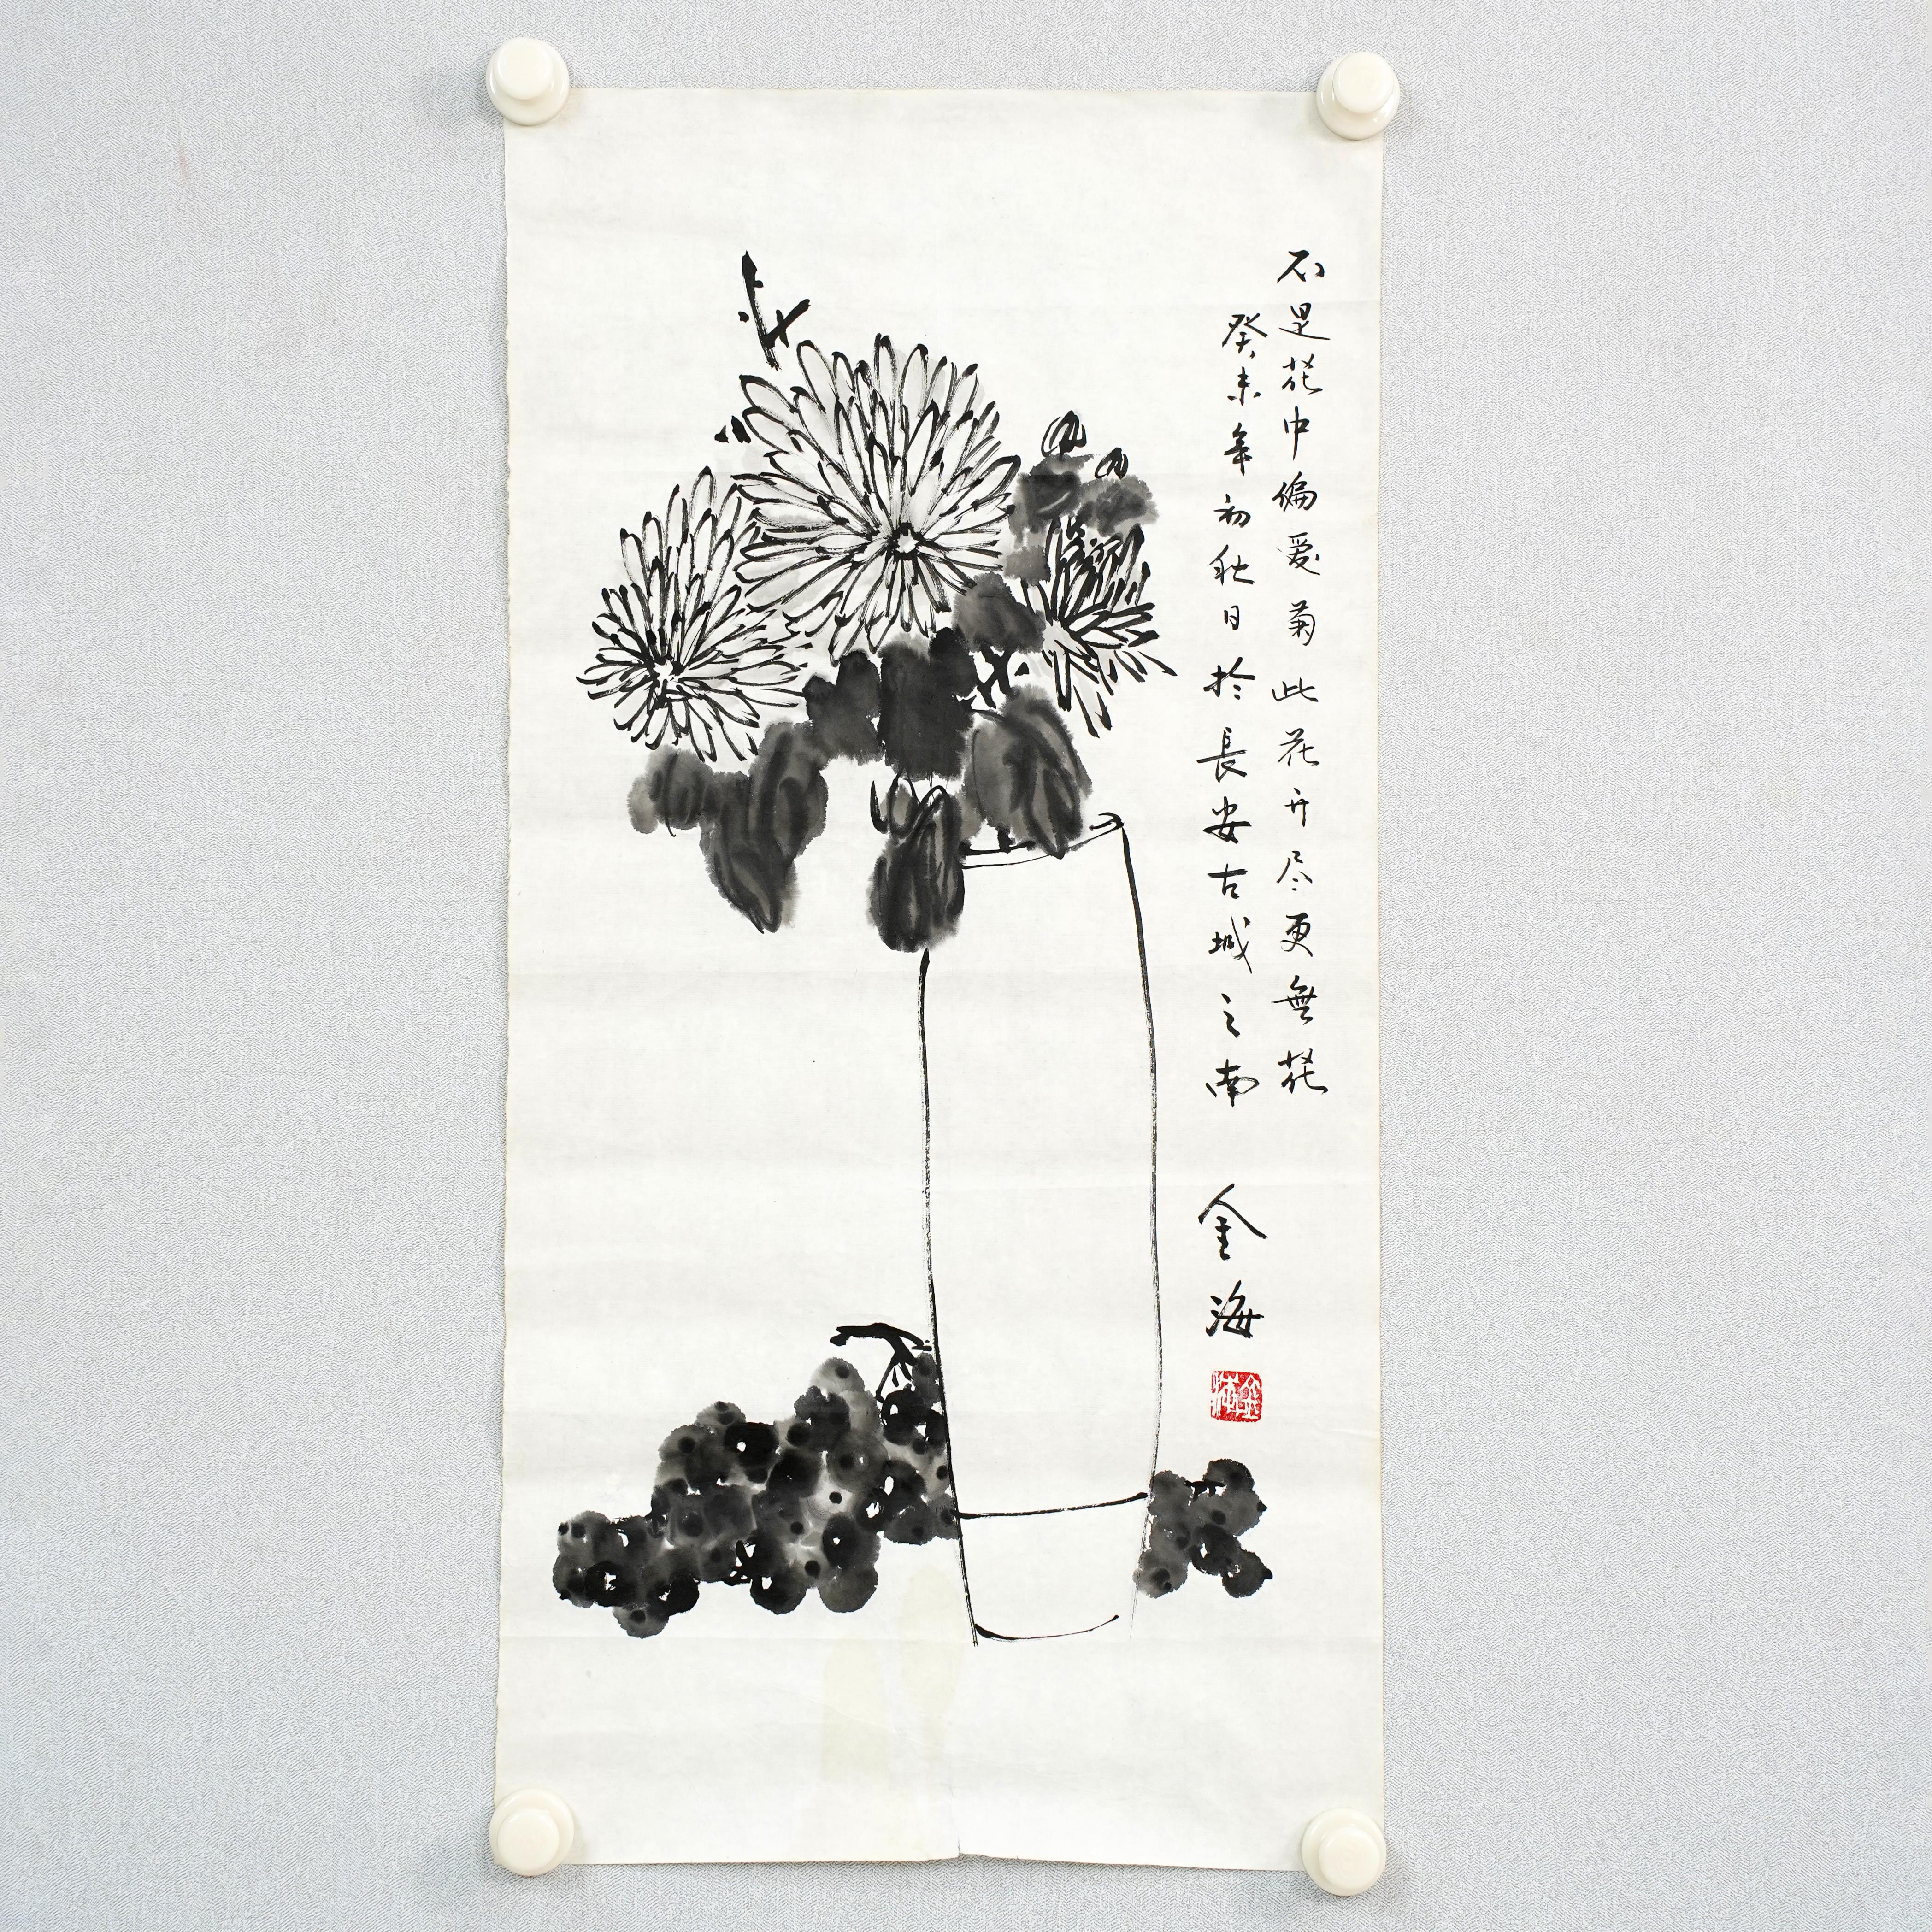 不是花中偏爱菊此花开尽更無花
癸未年初秋日於長安古城之南
金海
金海